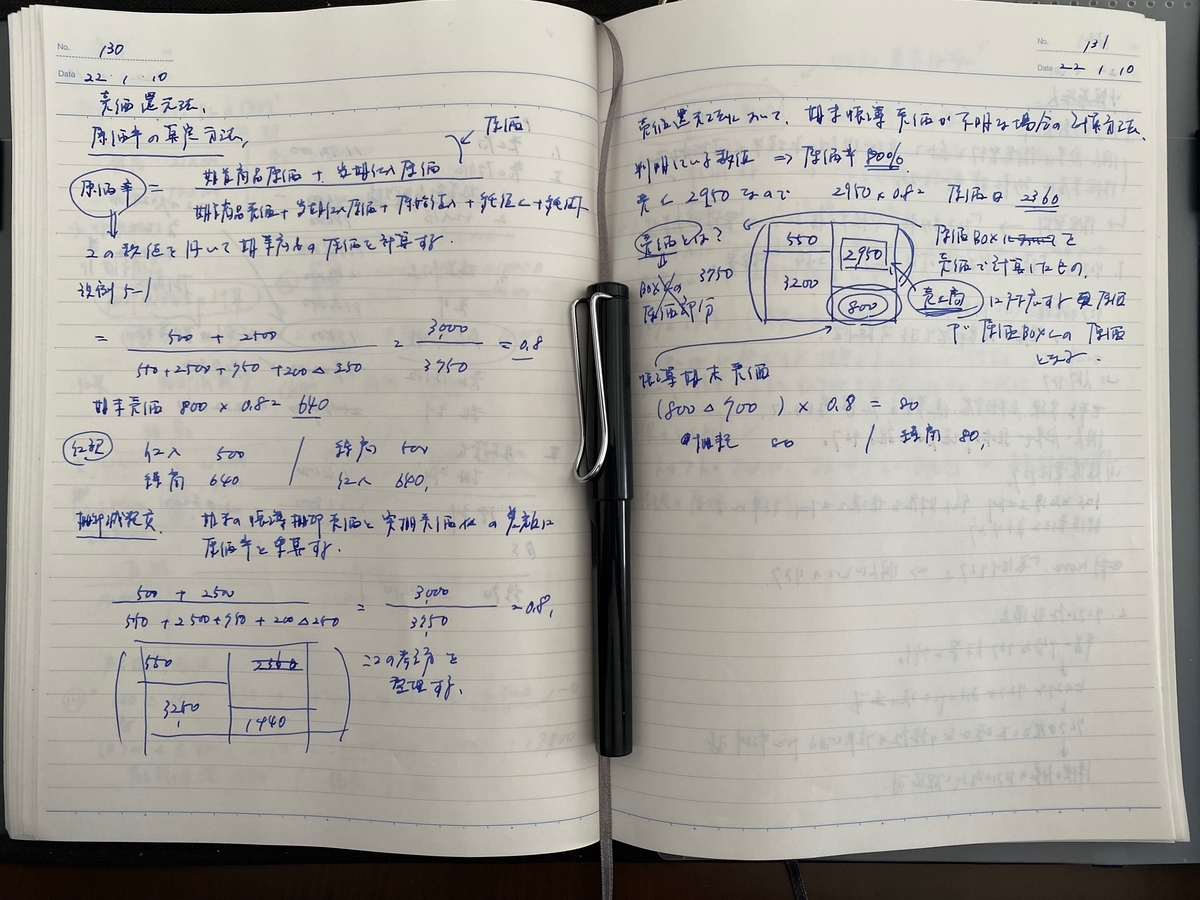 No. 130
Date 22・1・10
売価還元法、
原価率の算定方法、
原価
原価率 = 期首商品原価 + 当期仕入原価
期首商品売価 + 当期仕入原価 + 原始値入 + 純値上 + 純値下
この数値を用いて期末商品の原価を計算する.
設例 5-1
= 500 + 2500
550+2500+950 +200 △ 250
= 3,000
3950
= 0.8
期末売価 800 × 0.8 = 640
仕訳 仕入 500 / 繰商 500
繰商 640 仕入 640,
棚卸減耗 期末の帳簿棚卸売価と実期売価 の差額に
原価率を乗算する.
500 + 2500
550 +2500+950 + 200 △ 250
= 3,000
3750
= 0.8,
550
2360
3250
1440
この考え方を
整理する、
No. 131
Date 22 1 10
売価還元法において、期末帳簿売価が不明な場合の計算方法.
判明している数値 ⇒ 原価率 80%
売上 2950 なので 2950 × 0.8 = 原価は 2360
売価とは?
BOXの 3750
原価部分
550
3200
2950
800
原価BOX を
売価で計算したもの.
売上高 に対応する 原価
が 原価BOX の 原価
となる.
帳簿期末売価
(800 △ 700 ) × 0.8 = 80
80 / 繰商 80,